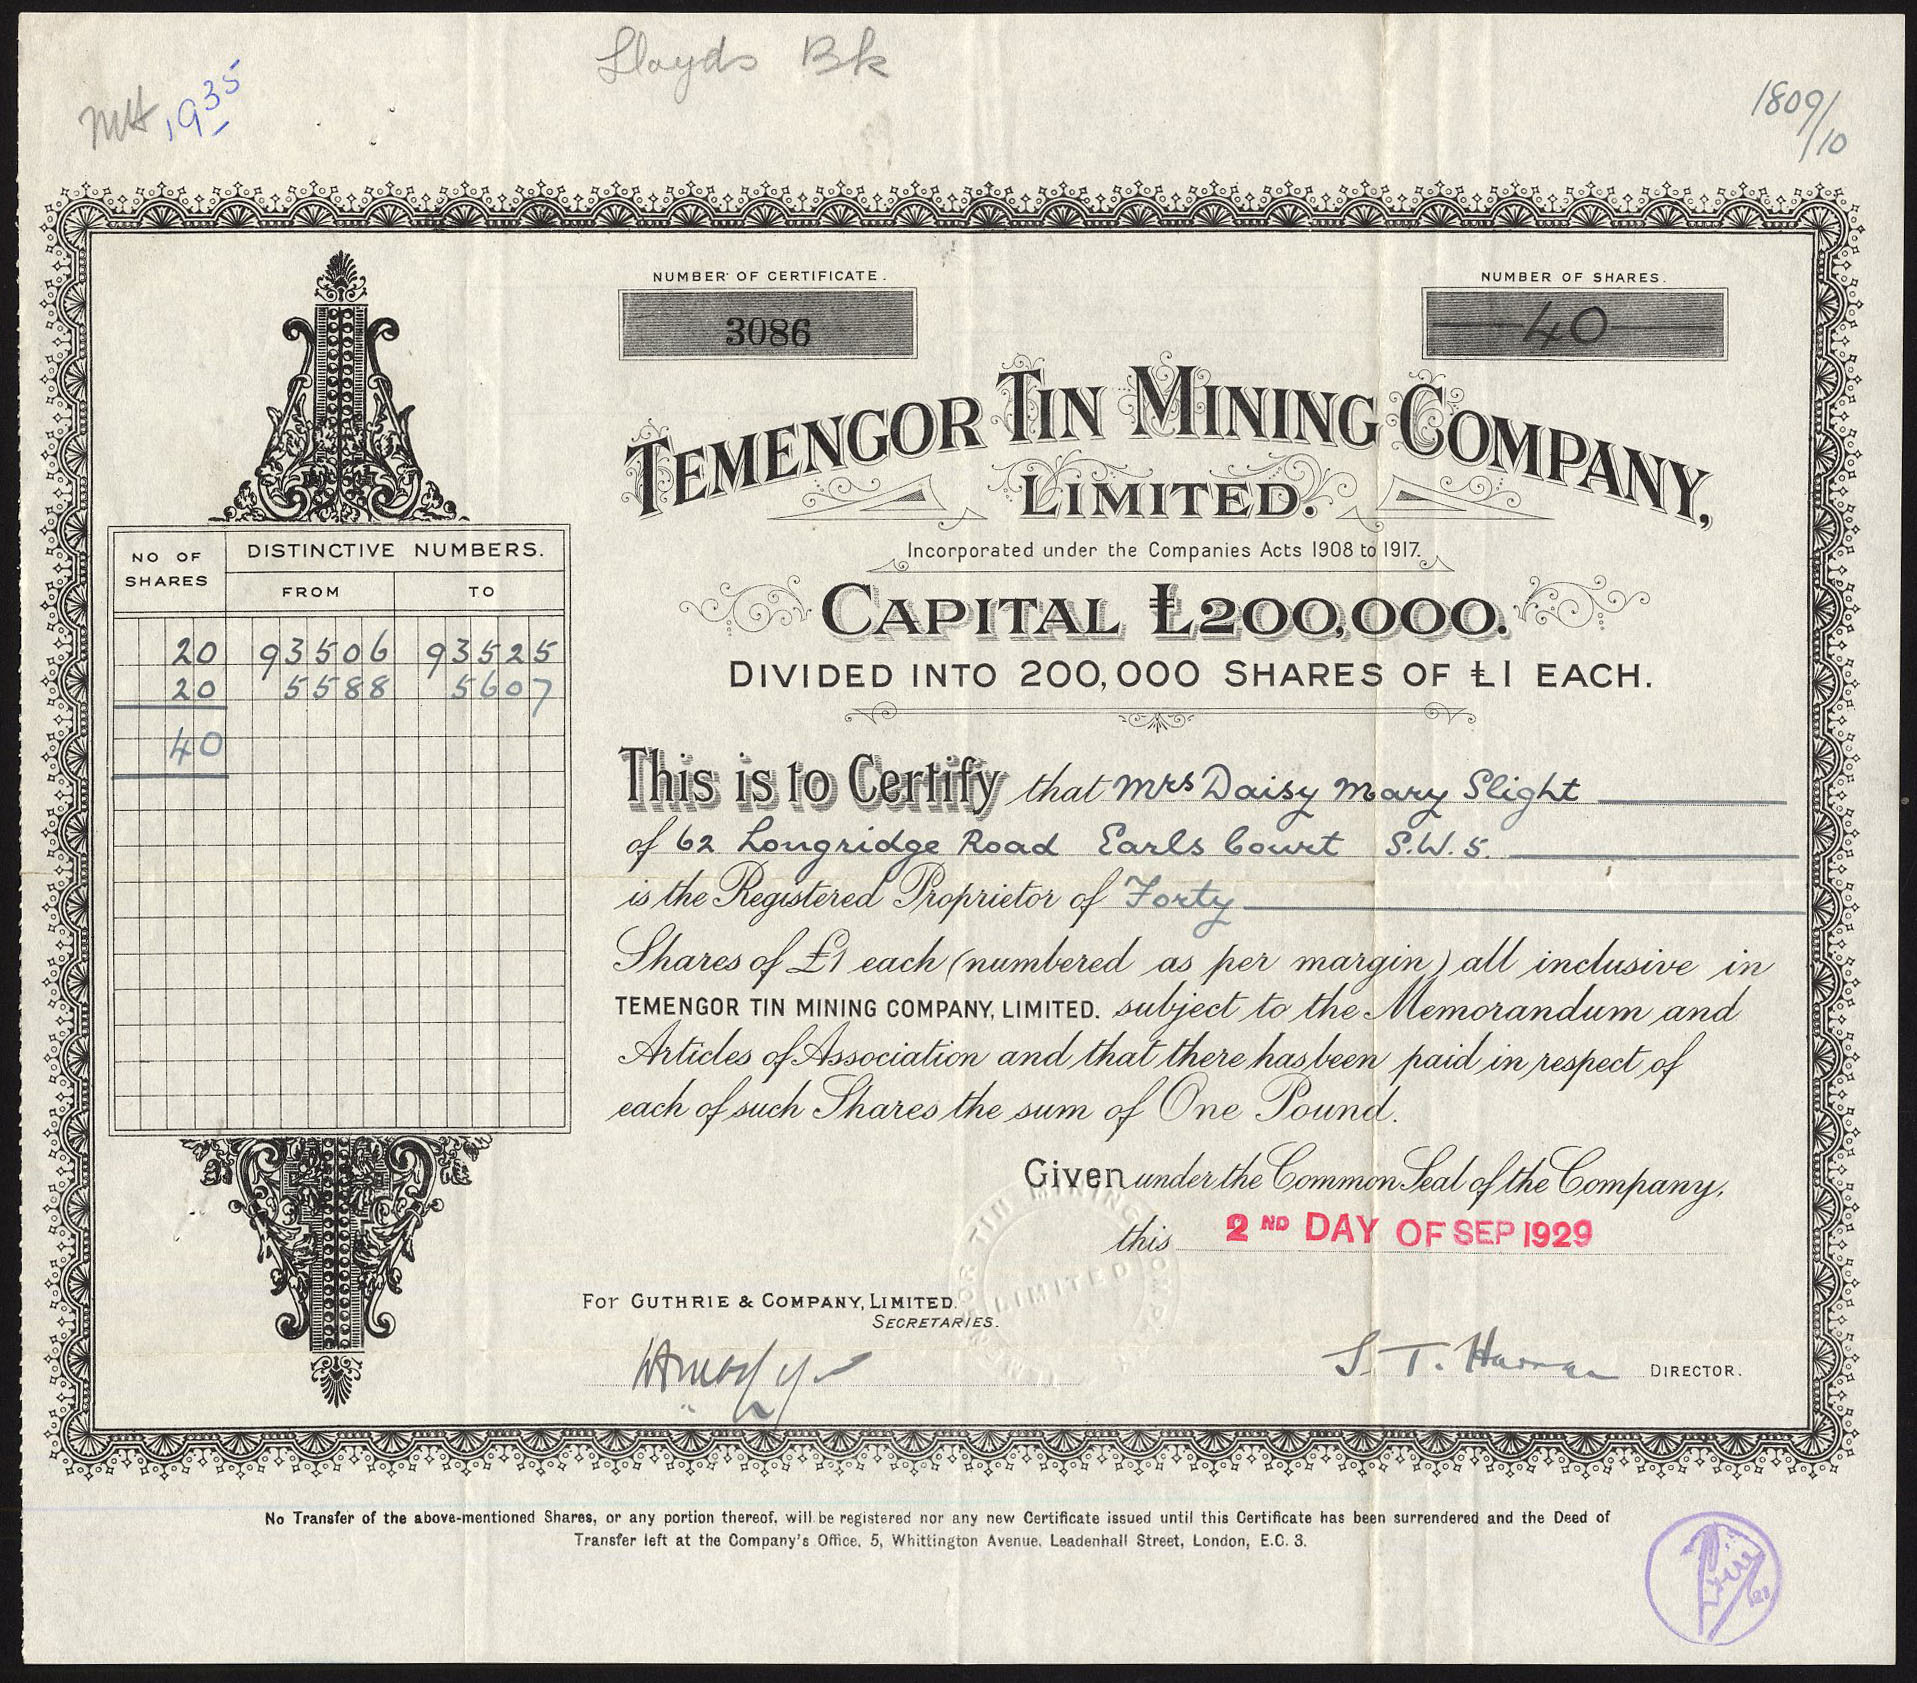 Lloyds Bk
MH 1935
1809/10
NUMBER OF CERTIFICATE.
3086
NUMBER OF SHARES.
40
TEMENGOR TIN MINING COMPANY,
LIMITED.
Incorporated under the Companies Acts 1908 to 1917.
CAPITAL £200,000.
DIVIDED INTO 200,000 SHARES OF £1 EACH.
NO OF SHARES
DISTINCTIVE NUMBERS.
FROM TO
20 93506 93525
20 5588 5607
40
This is to Certify that Mrs Daisy Mary Slight
of 62 Longridge Road Earls Court S.W.5.
is the Registered Proprietor of Forty
Shares of £1 each (numbered as per margin) all inclusive in
TEMENGOR TIN MINING COMPANY, LIMITED. subject to the Memorandum and
Articles of Association and that there has been paid in respect of
each of such Shares the sum of One Pound.
Given under the Common Seal of the Company,
this 2ND DAY OF SEP 1929
TEMENGOR TIN MINING COMPANY
LIMITED
For GUTHRIE & COMPANY, LIMITED.
SECRETARIES.
DIRECTOR.
No Transfer of the above-mentioned Shares, or any portion thereof, will be registered nor any new Certificate issued until this Certificate has been surrendered and the Deed of
Transfer left at the Company's Office, 5, Whittington Avenue, Leadenhall Street, London, E.C. 3.